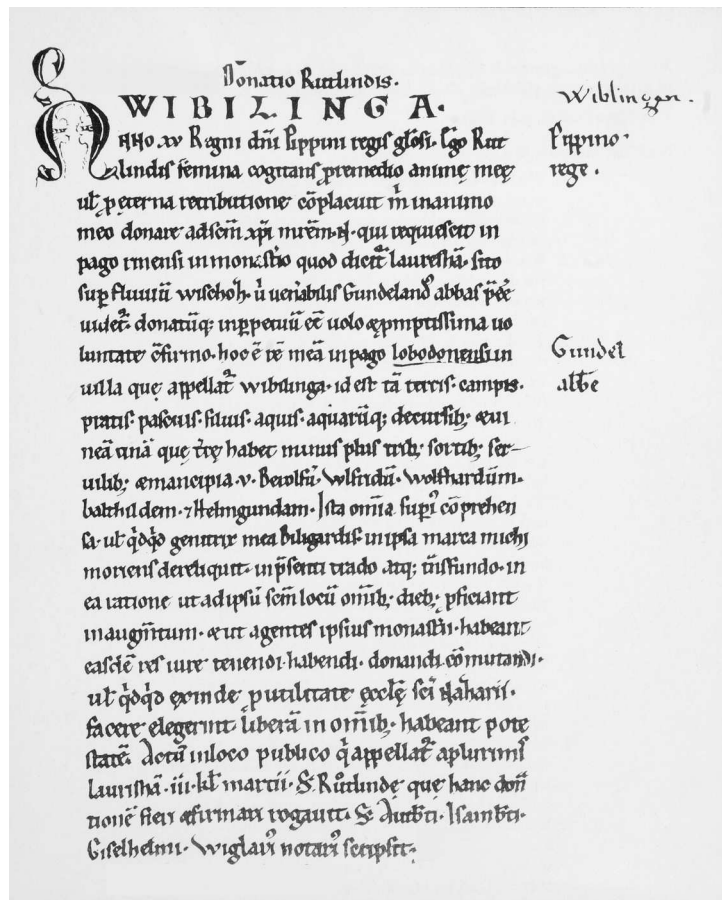 Donatio Rutlindis.
WIBILINGA.
Wiblingen.
ANNO .xv Regni dñi Pippini regis gl̃osi. Ego Rut
Pippino.
lindis femina cogitans p̱remedio animę meę
rege.
ul̃ p̱ eterna retributione cõplacuit m̃ inanimo
meo donare adscm̃ xp̃i mr̃em .N. qui requiescit in
pago rinensi inmonast̃io quod dicit̃ lauresham̃. sito
sup̱ fluuiũ wischoh̃. ũ uen̾abilis Gundelandꝰ abbas p̃ẽe
uidet̃. donatũq; inp̱petuũ eẽ uolo & p̱mptissima uo
luntate c̃firmo. hoc ẽ rẽ meã inpago lobodonensi in
Gundel̃
uilla quę appellat̃ wibilinga. id est tã terris. campis.
abb̃e
pratis. pascuis. siluis. aquis. aquarũq; decursib; & ui
neã unã quę t̃rę habet minus plus trib; sortib; ser-
uilib; & mancipia .v. Berolfũ. Wlfridũ. Wolfhardum.
balthildem. ⁊ Helmgundam. Ista om̃ia sup̱i᷒ cõprehen
sa. ul̃ q̃dq̃d genitrix mea Biligardis. inipsa marca michi
moriens dereliquit. inp̃senti trado atq; tñsfundo. in
ea ratione ut adipsũ scm̃ locũ om̃ib; dieb; p̱ficiant
inaugm̃tum. & ut agentes ipsius monast̃ii. habeant
easdẽ res iure tenendi. habendi. donandi. cõmutandi.
ul̃ q̃dq̃d exinde p̱ utilitate ęccl̃ę sc̃i Nazarii.
facere elegerint. liberã in om̃ib; habeant pote
statẽ. Actũ inloco publico q̃ appellat̃ aplurimis
Laurishã. iii. kl̃ martii. S. Růtlindę que hanc don̾
tionẽ fieri & firmari rogauit. S. Autb̃ti. Isamb̃ti.
Giselhelmi. Wiglariꝰ notariꝰ scripsit.